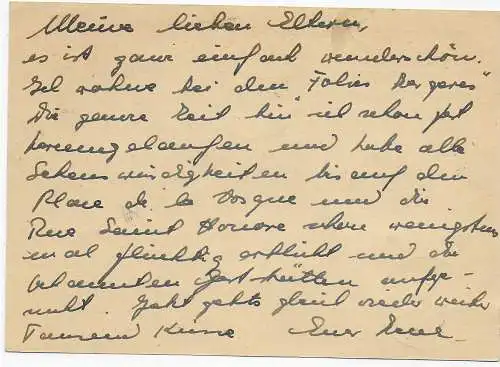 Meine lieben Eltern,
es ist ganz einfach wunderschön.
Ich wohne bei den "Folies Bergeres"
Die ganze Zeit bin ich schon fast
herumgelaufen und habe alle
Sehenswürdigkeiten bis auf den
Place de la und die
Rue Saint Honore schon wenigstens
mal flüchtig erblickt und die
bekannten Gaststätten aufge-
sucht. Jetzt gehts gleich wieder weiter
Tausend Küsse Euer